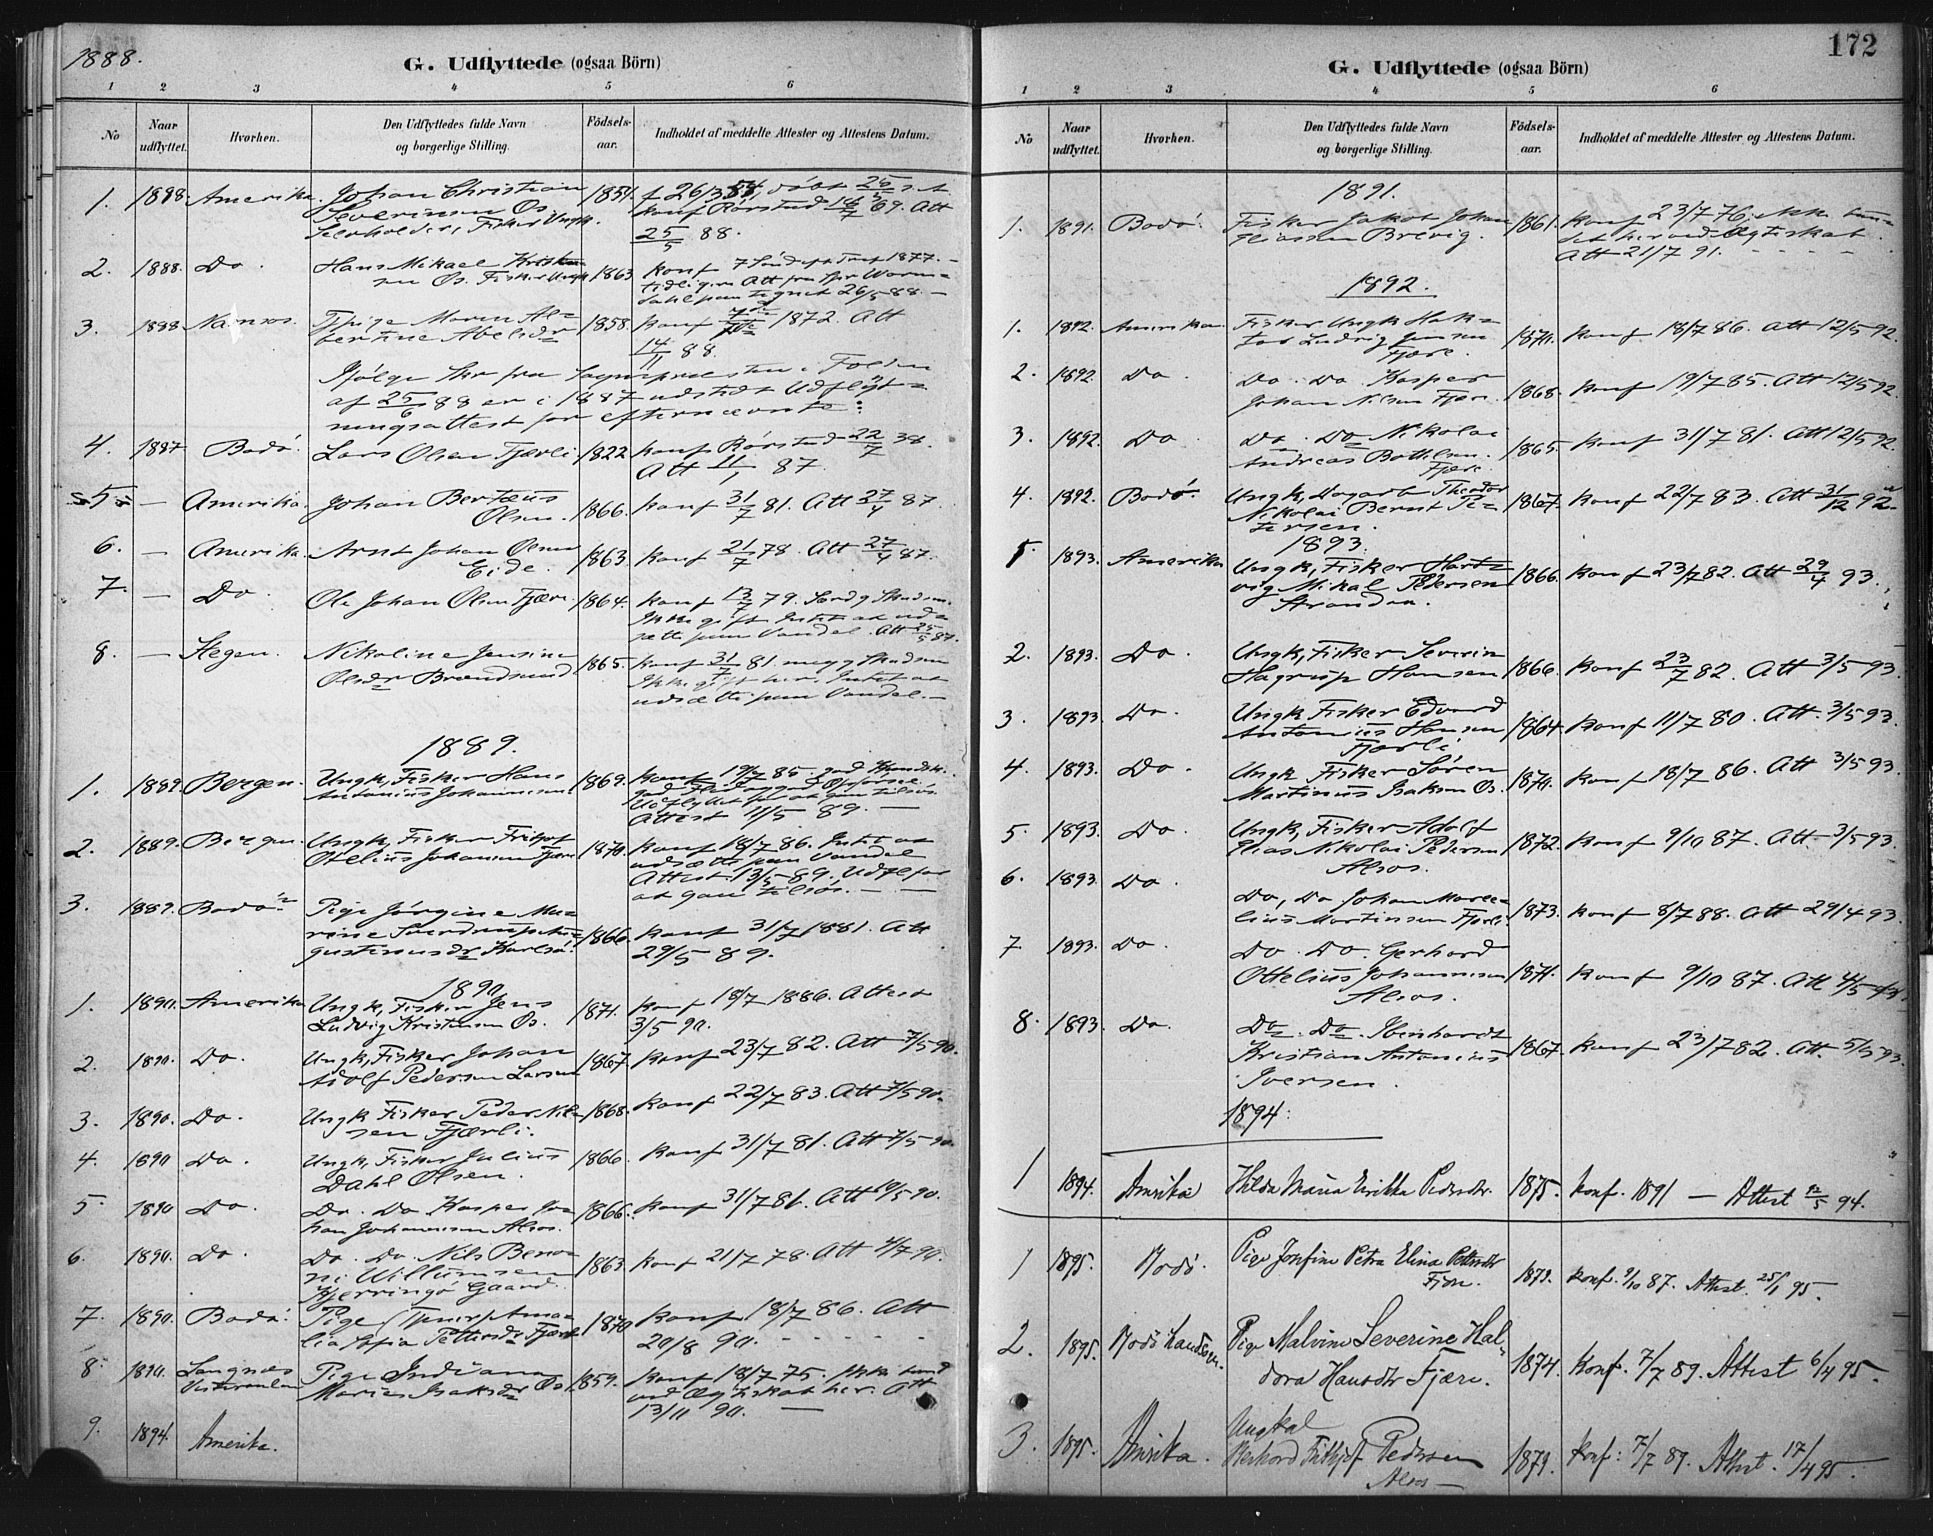 1888.
G. Udflyttede (ogsaa Börn)
1 2 3 4 5 6
No
Naar udflyttet.
Hvorhen.
Den Udflyttedes fulde Navn og borgerlige Stilling.
Födsels-aar.
Indholdet af meddelte Attester og Attestens Datum.
1. 1888. Amerika. Johan Christian 1854. f 26/3 54, döbt 25/5 s. A.
Severinsen Os konf Rörstad 69. Att
Selvholder, Fisker Ungk. 25/5 88.
2. 1888. Do. Hans Mikael Kristian 1863 konf 7 Sönd ef Tref 1877.
sen Os. Fisker Ungk
26/5 88.
3. 1888 Namsos. Pige Maren Al= 1858. konf 1872. Att
bertine Abelsdr 14/11 88.
Ifölge Skr fra Sognepræsten i Folden
af 25/6 88 er i 1887 udstedt Udflyt=
ningsattest for efternævnte:
4. 1887 Bodö. Lars Olsen Fjærli 1822 konf Rörstad 22/7 38.
Att 11/1 87.
5 — Amerika. Johan Bertæus 1866. konf 31/7 81. Att 27/4 87.
Olsen.
6. — Amerika. Arnt Johan Olsen 1863. konf 21/7 78. Att 27/4 87.
Eide.
7. — Do. Ole Johan Olsen Fjære 1864. konf 13/7 79.
Ikke gift Intet at ud=
sætte paa Vandel. Att 25/5 87.
8. — Stegen. Nikoline Jensine 1865. konf 31/7 81.
Olsdr Brændsund Ikke gift her. Intet at
udsætte paa Vandel.
1889.
1. 1889. Bergen. Ungk, Fisker Hans 1869. konf 19/7 85 god Kundsk.
Antonius Johannesen
Udflyttet for at gaa tilsøs.
Attest 11/5 89. —
2. 1889. Bergen. Ungk, Fisker Fritjof 1870. konf 18/7 86. Intet at
Otelius Johansen Fjære udsætte paa Vandel
Attest 13/5 89. Udfl for
at gaa tilsøs. — —
3. 1889. Bodö. Pige Jörgine Ma=
rine Sverdrup Au= 1866. konf 31/7 1881. Att
gustinusdr Karlsö. 29/5 89.
1890
1. 1890. Amerika Ungk, Fisker Jens 1871. konf 18/7 1886. Attest
Ludvig Kristensen Os. 3/5 90.
2. 1890. Do. Ungk, Fisker Johan 1867 konf 23/7 82. Att 7/5 90.
Adolf Pedersen Larsen
3. 1890. Do. Ungk Fisker Peder Nil= 1868. konf 22/7 83. Att 7/5 90.
sen Fjærli.
4. 1890 Do. Ungk, Fisker Julius 1866. konf 31/7 81. Att 7/5 90.
Dahl Olsen.
5. 1890 Do. Do. Do Kasper Jo= 1866. konf 31/7 81. Att 10/5 90.
han Johannesen Alsos.
6. 1890. Do. Do. Do. Nils Beno= 1863. konf 21/7 78. Att 4/7 90.
ni Willumsen
Kjerringö Gaard.
7. 1890. Bodö. Pige (Tjener) Ama= 1870 konf 18/7 86. Att
lia Sofia Pettersdr Fjære 20/8 90. - - - -
8. 1890. Langnæs Pige Indiana 1859. konf 18/7 75. Ikke
Vesteraalen Maries Isaksdr Os. ved Ægteskab her. Att
13/11 90. —
9. 1894. Amerika.
172
G. Udflyttede (ogsaa Börn)
1 2 3 4 5 6
No
Naar udflyttet.
Hvorhen.
Den Udflyttedes fulde Navn og borgerlige Stilling.
Födsels-aar.
Indholdet af meddelte Attester og Attestens Datum.
1891.
1. 1891. Bodö. Fisker Jakob Johan 1861. konf 23/7 76. Ikke bun=
Eliassen Brevig. det her ved Ægteskab.
Att 21/7 91. - - - -
1892.
1. 1892. Amerika. Fisker Ungk Hak= 1870. konf 18/7 86. Att 12/5 92.
Ludvig Jensen
Fjære.
2. 1892. Do. Do. Do. Kasper 1868. konf 19/7 85. Att 12/5 92.
Johan Nilsen Fjære.
3. 1892. Do Do. Do Nikolai 1865. konf 31/7 81. Att 12/5 92.
Andreas Bottelsen
Fjære.
4. 1892. Bodö. Ungk, Theodor 1867. konf 22/7 83. Att 31/12 92.
Nikolai Bernt Pe=
tersen.
1893.
1. 1893. Amerika Ungk, Fisker Hart= 1866. konf 23/7 82. Att 29/4 93.
vig Mikal Pedersen
Stranden.
2. 1893. Do. Ungk, Fisker Severin 1866. konf 23/7 82. Att 3/5 93.
Hagrup Hansen
3. 1893. Do. Ungk Fisker Edvard 1864. konf 11/7 80. Att. 3/5 93.
Antonius Hansen
Fjærli
4. 1893. Do. Ungk Fisker Sören 1870. konf 18/7 86. Att 3/5 93.
Martinus Isaksen Os.
5. 1893. Do. Ungk, Fisker Adolf 1872. konf 9/10 87. Att. 3/5 93.
Elias Nikolai Pedersen
Alsos.
6. 1893. Do.
Do, Do Johan Marce= 1873. konf 8/7 88. Att 29/4 93.
lius Martinsen Fjærli.
7 1893. Do. Do. Do. Gerhard
Ottelius Johannesen 1871. konf 9/10 87. Att 4/5
Alsos.
8. 1893. Do. Do. Do. Ebenhardt
Kristian Antonius 1867. konf 23/7 82. Att. 5/5 93.
Iversen.
1894.
1 1894. Amerika Hilda Maria Erikka Pedersdr. 1875. konf. 1891 — Attest 12/5 94.
1 1895. Bodö. Pige Josefine Petra Elina Pettersdr
Fjære. 1873. konf. 9/10 87. Attest. 25/1 95.
2. 1895. Bodö Landsogn. Pige Malvine Severine Hal-
dora Hansdtr Fjære. 1874. konf. 7/7 89. Attest 6/4 95.
3. 1895. Amerika. Ungkal
Pedersen 1873. konf: 7/7 89. Attest. 17/4 95.
Alsos —